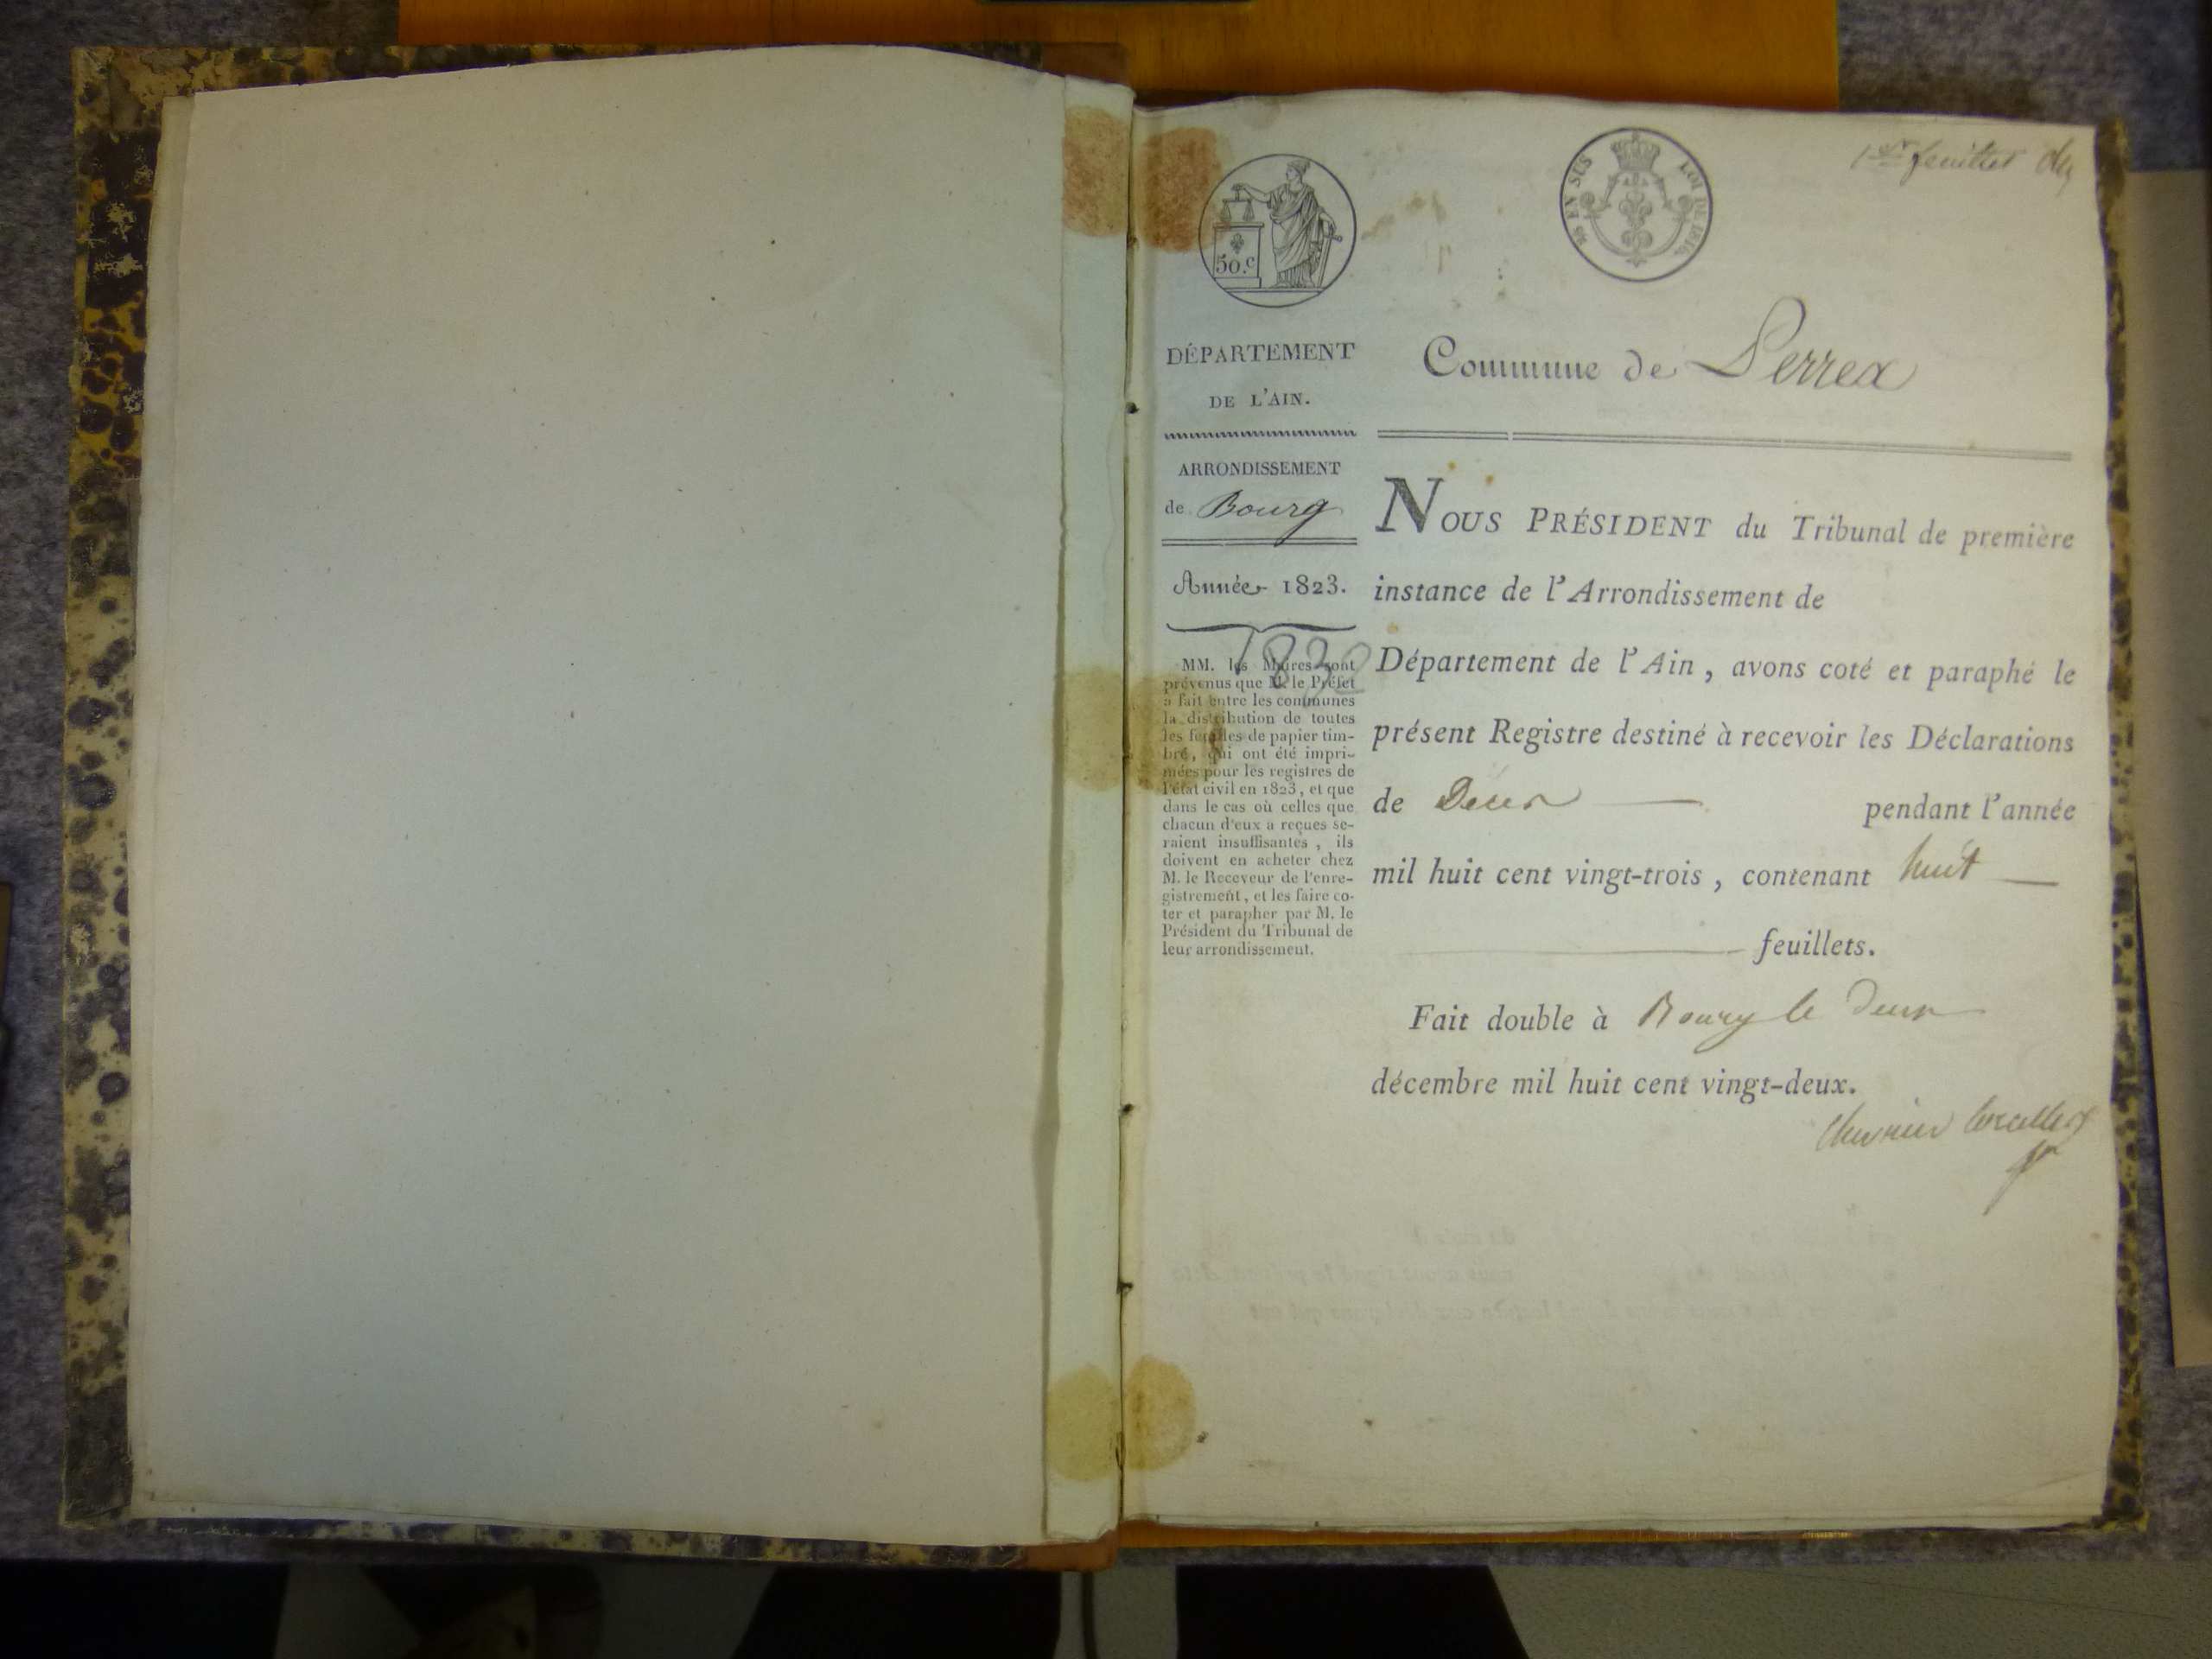 1er feuillet
50.c
EN SUS LOI DE 1816.
DÉPARTEMENT
DE L'AIN.
Commune de Perrex
ARRONDISSEMENT
de Bourg
Année 1823.
1832
MM. les Maires sont
prévenus que M. le Préfet
a fait entre les communes
la distribution de toutes
les feuilles de papier tim-
bré, qui ont été impri-
mées pour les registres de
l'état civil en 1823, et que
dans le cas où celles que
chacun d'eux a reçues se-
raient insuffisantes, ils
doivent en acheter chez
M. le Receveur de l'enre-
gistrement, et les faire co-
ter et parapher par M. le
Président du Tribunal de
leur arrondissement.
NOUS PRÉSIDENT du Tribunal de première
instance de l'Arrondissement de
Département de l'Ain, avons coté et paraphé le
présent Registre destiné à recevoir les Déclarations
de Décès pendant l'année
mil huit cent vingt-trois, contenant huit
feuillets.
Fait double à Bourg le deux
décembre mil huit cent vingt-deux.